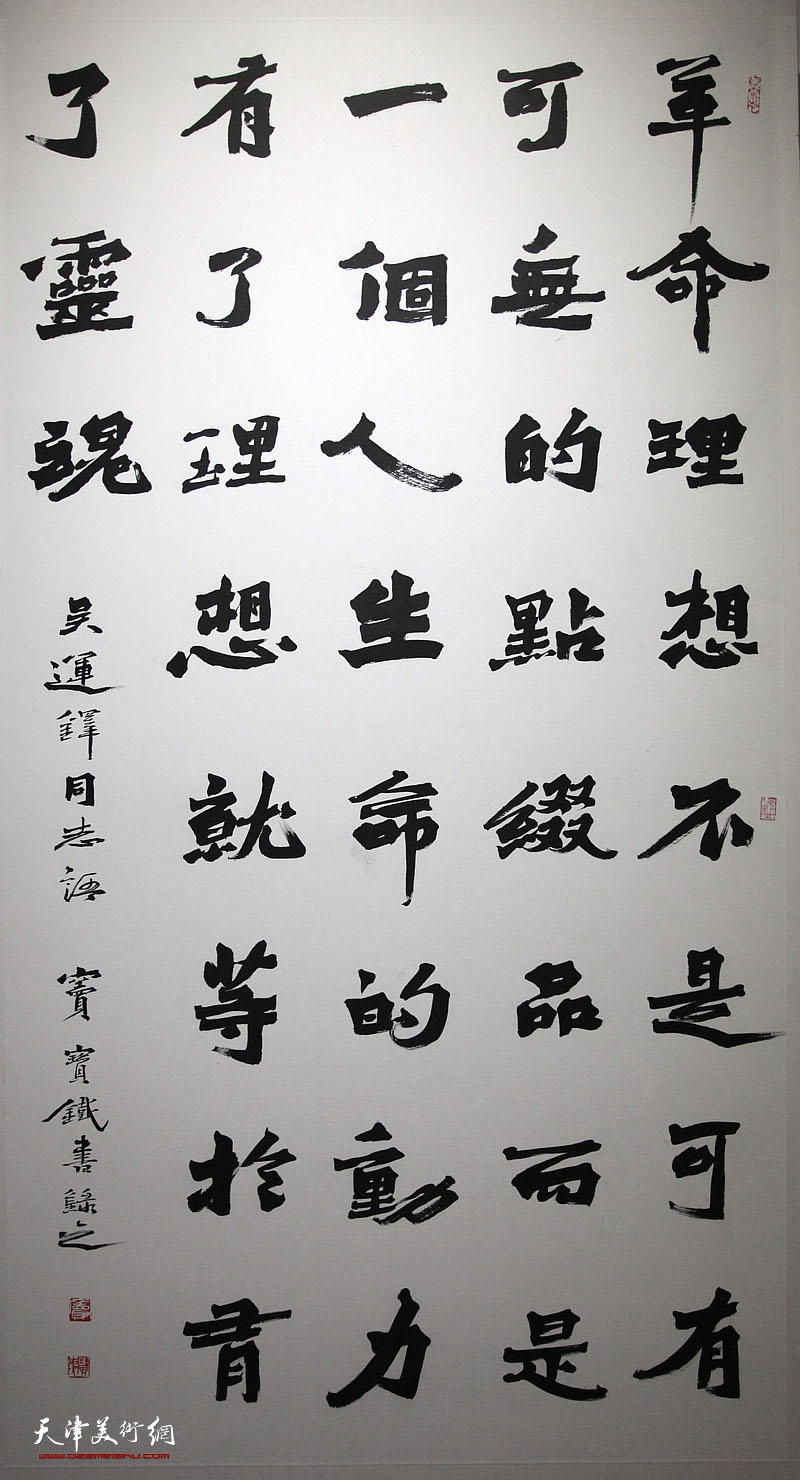 革命理想不是可有
可無的點綴品而是
一個人生命的動力
有了理想就等於有
了靈魂
吳運鐸同志語 竇寶鐵書錄之
天津美術網